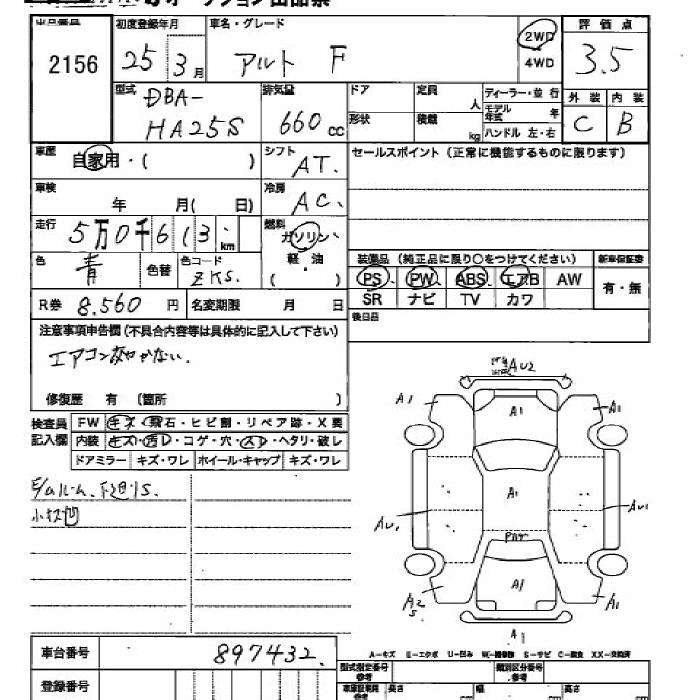 オークション出品票
出品番号
2156
初度登録年月
25 3月
車名・グレード
アルト F
2WD
4WD
評価点
3.5
外装 内装
C B
型式
DBA-
HA25S
排気量
660 cc
ドア
形状
定員 人
積載 kg
ディーラー・並行
モデル年式 年
ハンドル 左・右
車歴
自家用・( )
シフト
AT.
セールスポイント(正常に機能するものに限ります)
車検
年 月( 日)
冷房
AC、
走行
5万0千613 km
燃料
ガソリン
軽・油
( )
色
青
色替
色コード
ZKS.
装備品(純正品に限り○をつけてください)
新車保証書
PS PW ABS エアB AW
SR ナビ TV カワ
有・無
R券 8.560 円
名変期限 月 日
後日品
注意事項申告欄(不具合内容等は具体的に記入して下さい)
修復歴 有 (箇所 )
検査員記入欄
FW キズ・飛石・ヒビ割・リペア跡・X要
内装 キズ・汚レ・コゲ・穴・スレ・ヘタリ・破レ
ドアミラー キズ・ワレ ホイール・キャップ キズ・ワレ
小キズ凹
AU2
A1
A1
A1
A1
AU1
AU1
A1
A2
S
A1
A1
車台番号
897432.
登録番号
A-キズ E-エクボ U-凹み W-補修跡 S-サビ C-腐食 XX-交換済
型式指定番号
類別区分番号
長さ cm
幅 cm
高さ cm